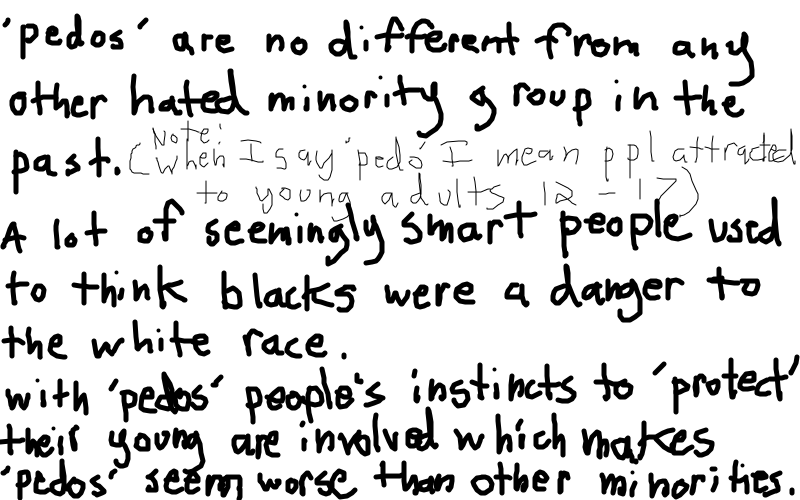 'pedos' are no different from any
other hated minority group in the
past. (Note: when I say 'pedo' I mean ppl attracted
to young adults 12 - 17)
A lot of seemingly smart people used
to think blacks were a danger to
the white race.
with 'pedos' people's instincts to 'protect'
their young are involved which makes
'pedos' seem worse than other minorities.